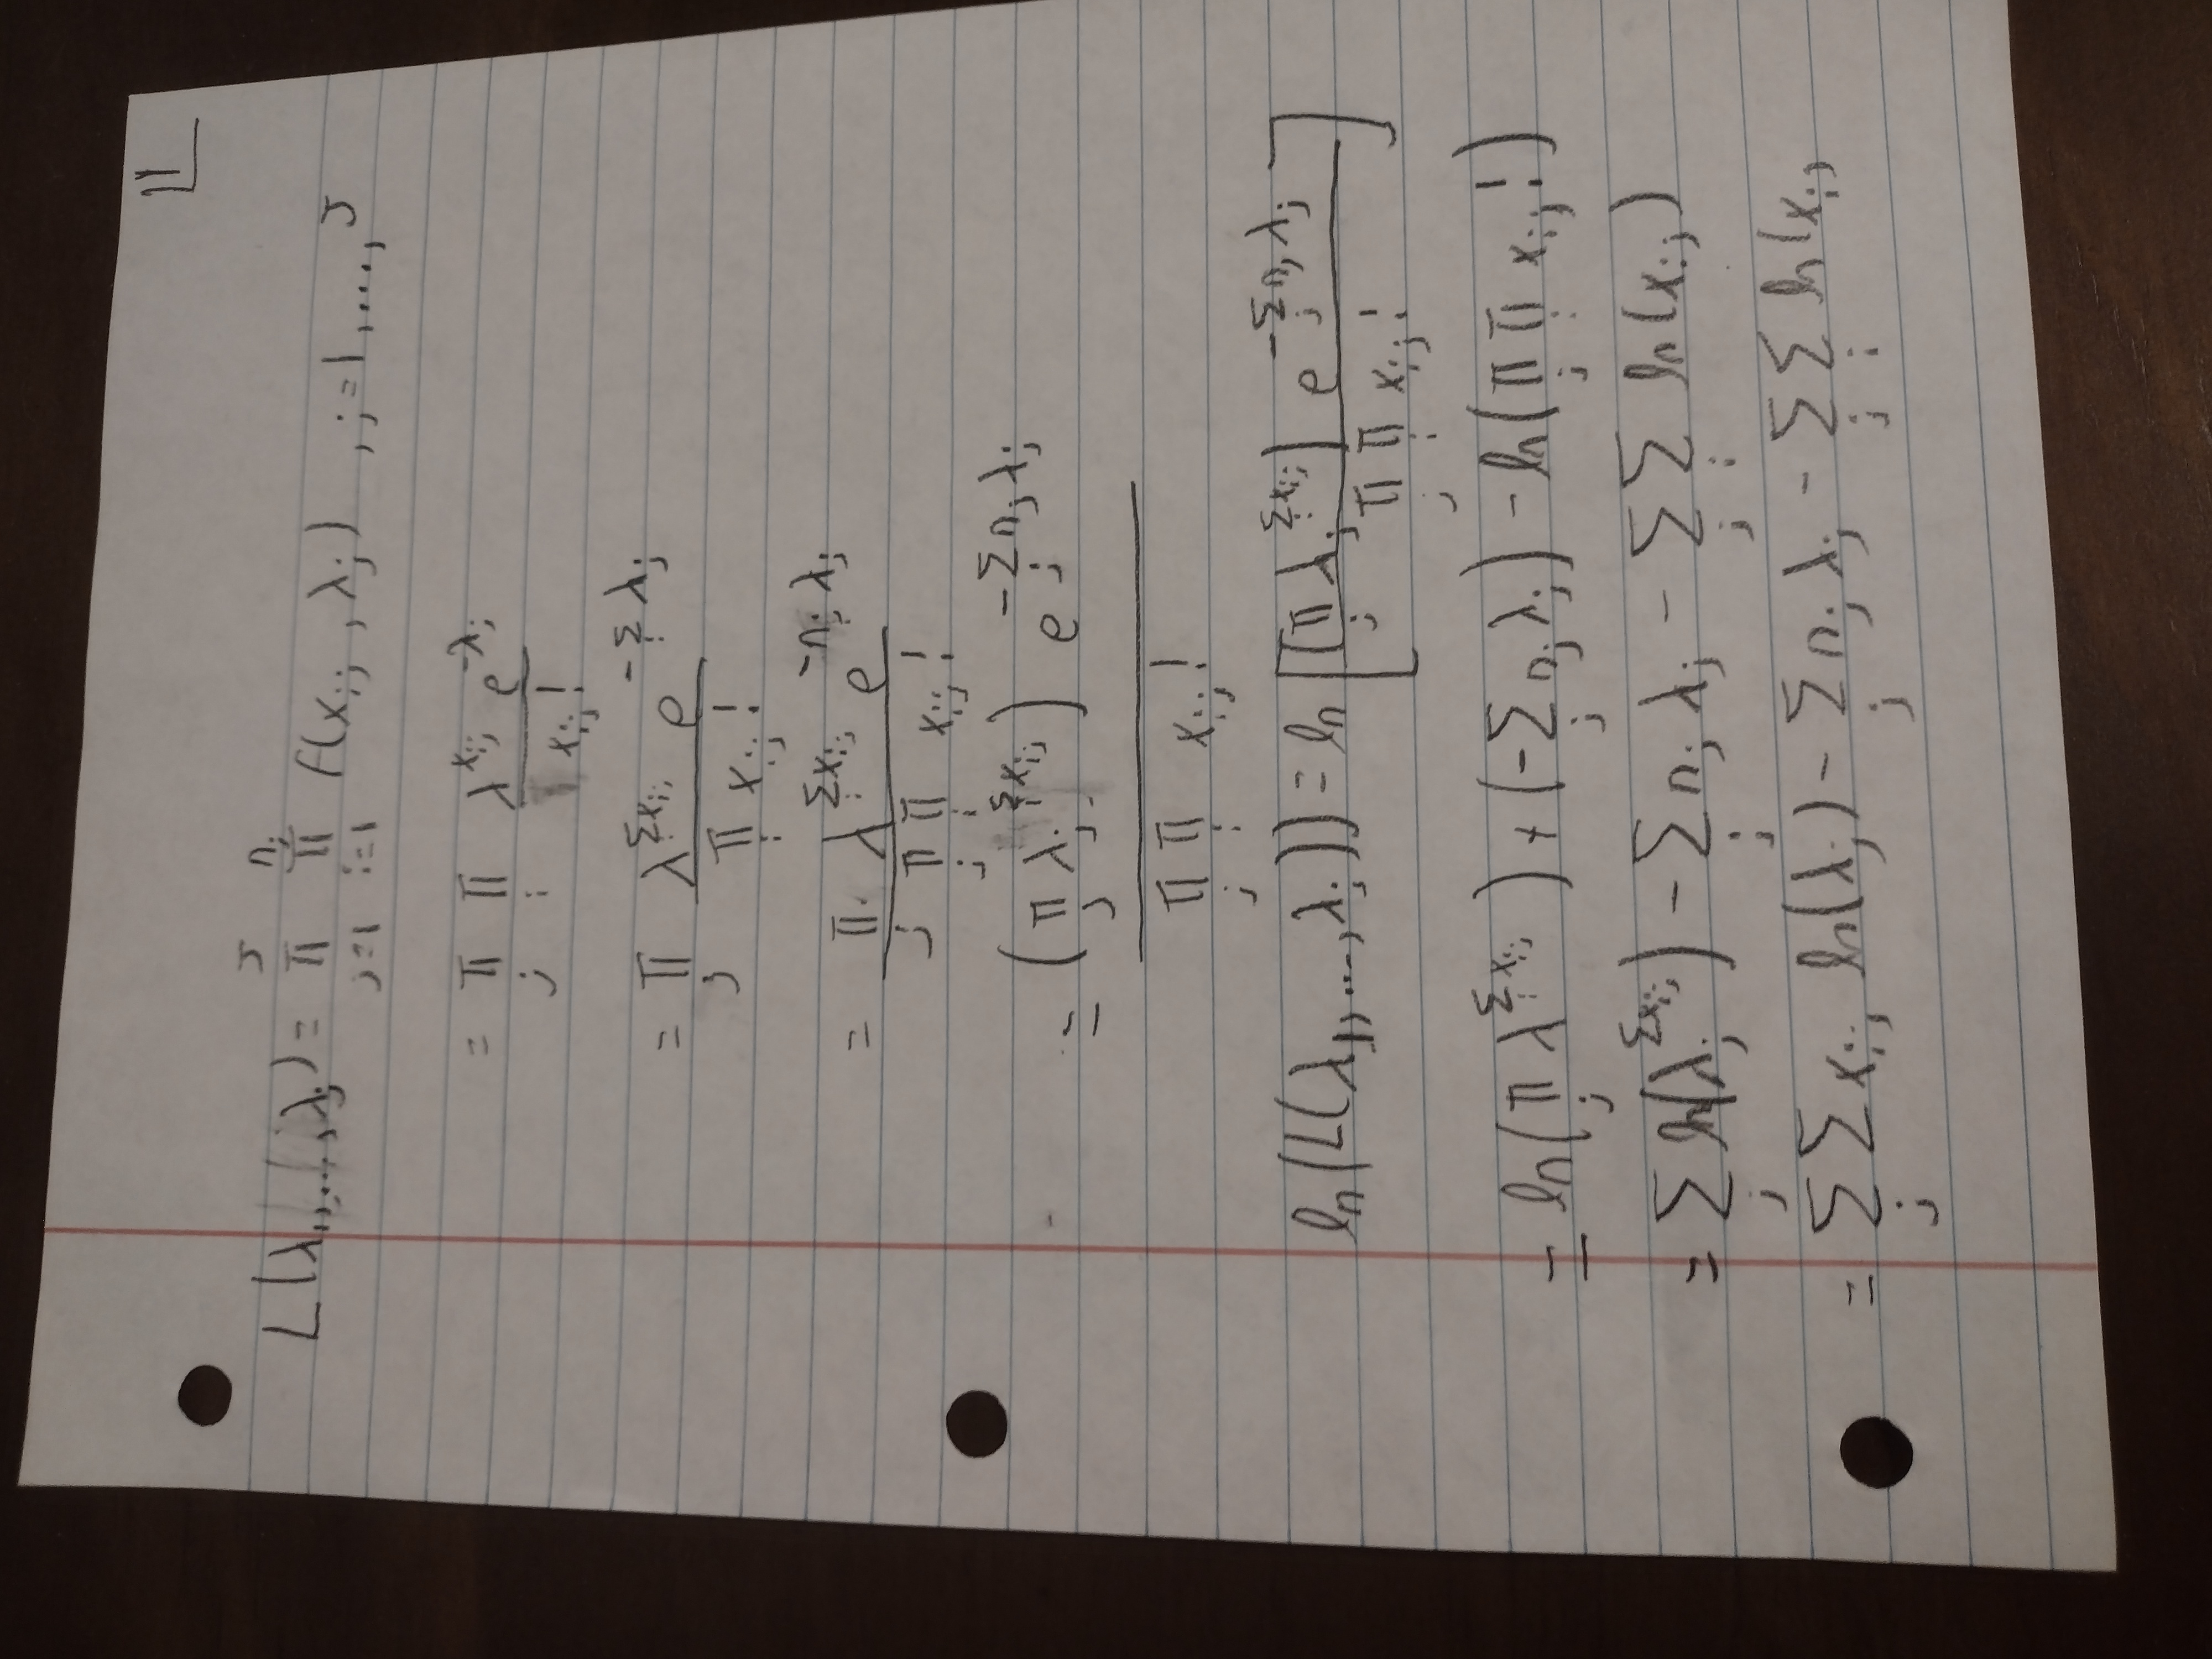 1
L(λ₁,...,λⱼ) = ∏_{j=1}^{J} ∏_{i=1}^{nⱼ} f(xᵢⱼ, λⱼ) , j=1,...,J
= ∏_j ∏_i λ^{xᵢⱼ} e^{-λⱼ} / xᵢⱼ!
= ∏_j λ^{∑_i xᵢⱼ} e^{-∑_i λⱼ} / ∏_i xᵢⱼ!
= ∏_j λ^{∑_i xᵢⱼ} e^{-nⱼ λⱼ} / ∏_j ∏_i xᵢⱼ!
= (∏_j λⱼ^{∑_i xᵢⱼ}) e^{-∑_j nⱼ λⱼ} / ∏_j ∏_i xᵢⱼ!
ln(L(λ₁,...,λⱼ)) = ln[(∏_j λⱼ^{∑_i xᵢⱼ}) e^{-∑_j nⱼ λⱼ} / ∏_j ∏_i xᵢⱼ!]
= ln(∏_j λ^{∑_i xᵢⱼ}) + (-∑_j nⱼ λⱼ) - ln(∏_j ∏_i xᵢⱼ!)
= ∑_j ln(λⱼ^{∑xᵢⱼ}) - ∑_j nⱼ λⱼ - ∑_j ∑_i ln(xᵢⱼ)
= ∑_j ∑ xᵢⱼ ln(λⱼ) - ∑_j nⱼ λⱼ - ∑_j ∑_i ln(xᵢⱼ